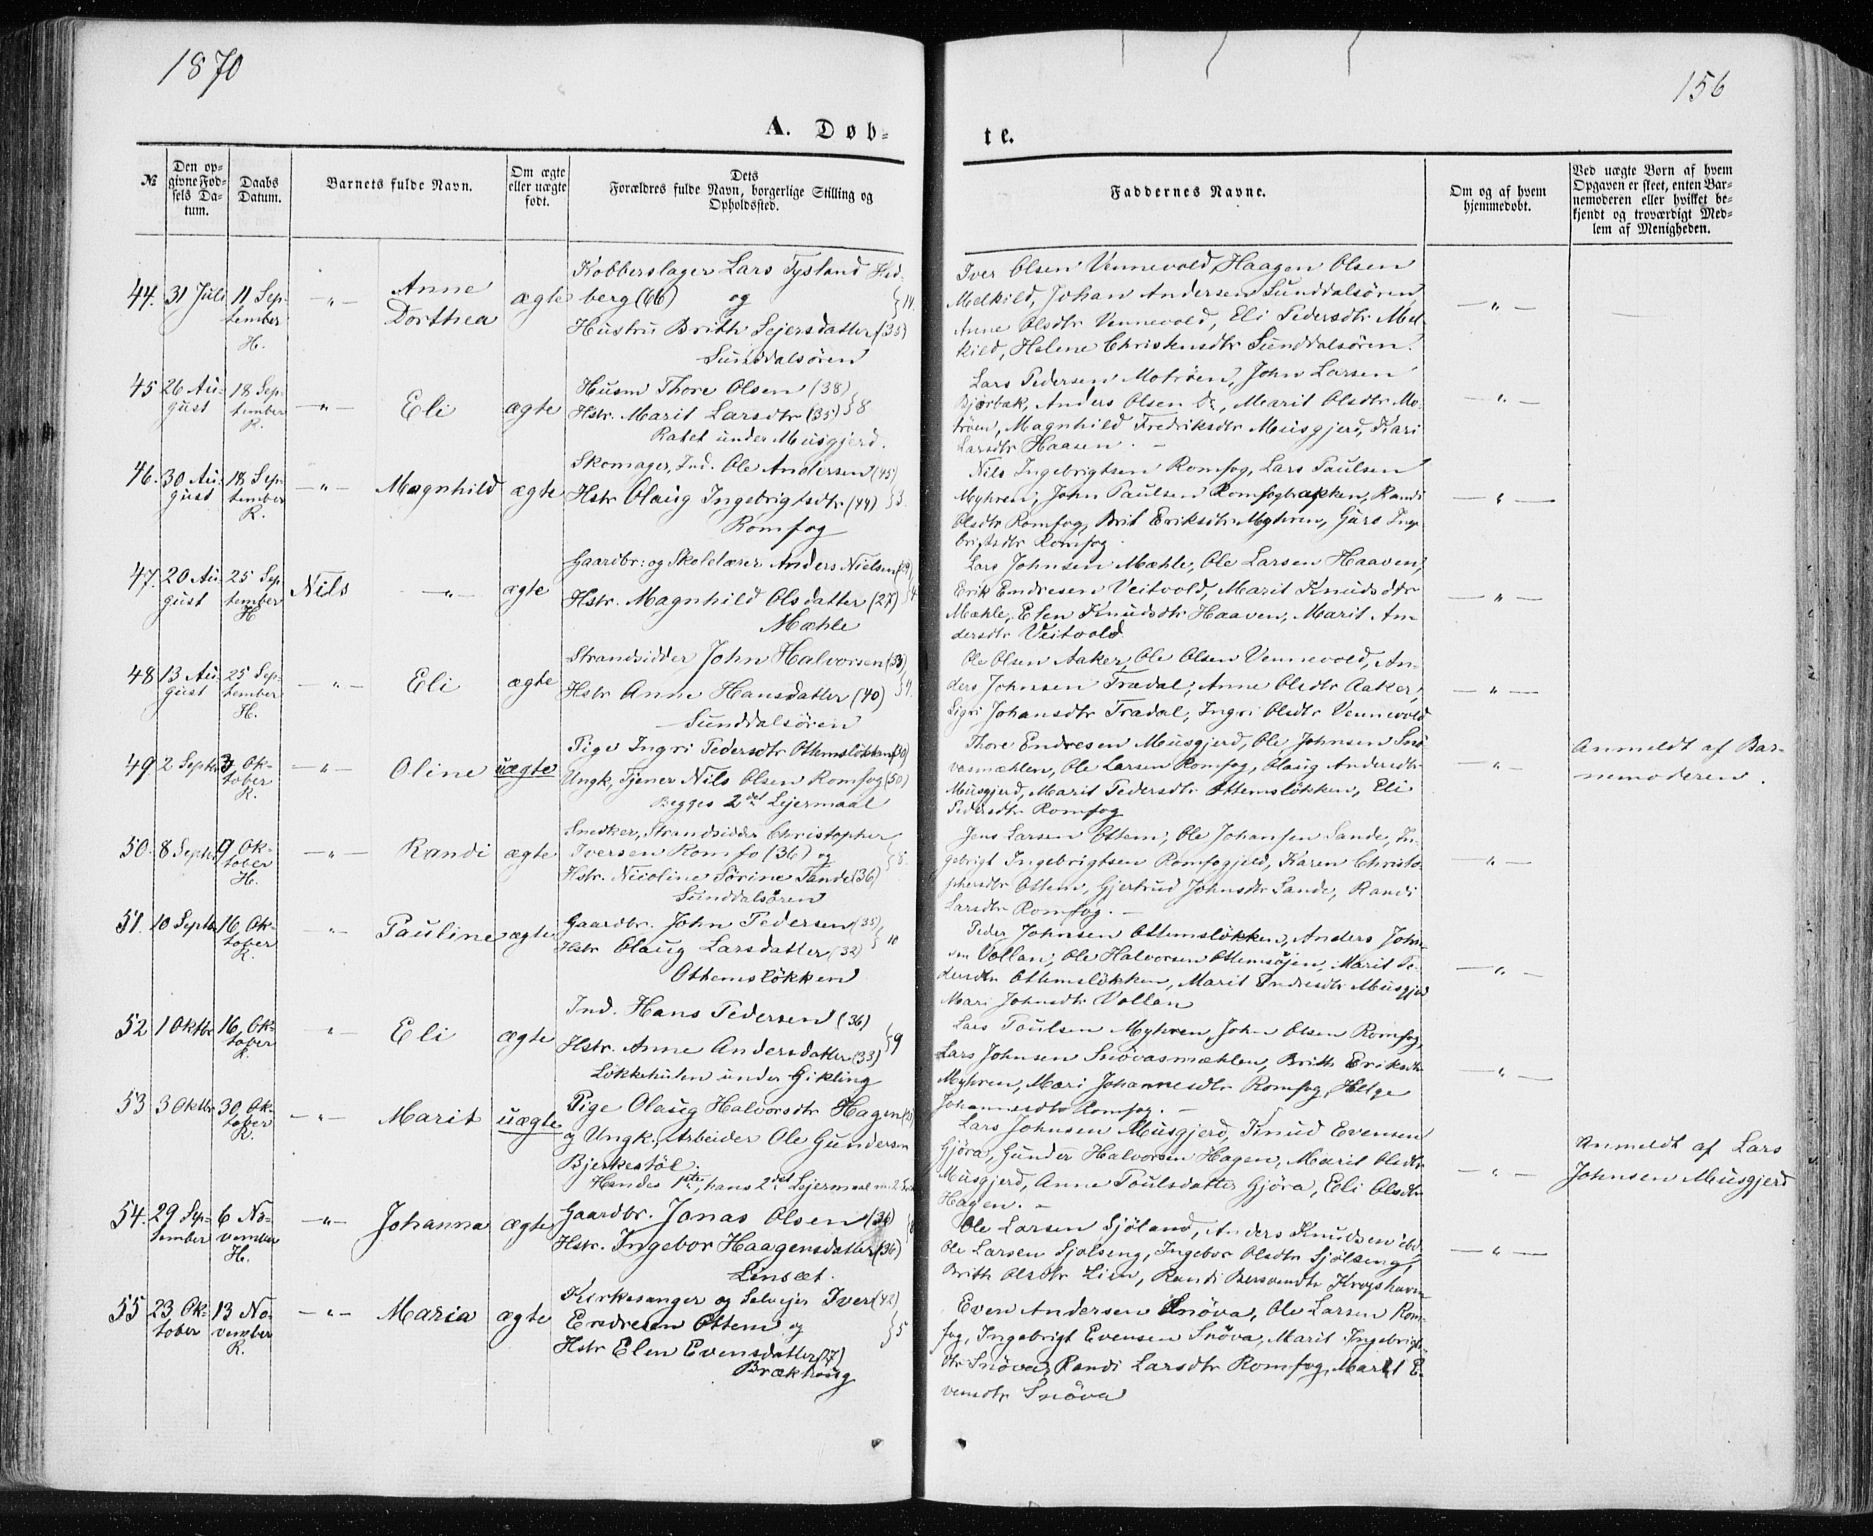 1870
156
A. Døb-
te.
№
Den op-
givne Fød-
sels Da-
tum.
Daabs
Datum.
Barnets fulde Navn.
Om ægte
eller uægte
født.
Dets
Forældres fulde Navn, borgerlige Stilling og
Opholdssted.
Faddernes Navne.
Om og af hvem
hjemmedøbt.
Ved uægte Børn af hvem
Opgaven er skeet, enten Bar-
nemoderen eller hvilket be-
kjendt og troværdigt Med-
lem af Menigheden.
44. 31 Juli 11 Sep-
tember
H.
-"- Anne
Dorthea
ægte
Kobberslager Lars Tysland Hed-
berg (66) og
Hustru Brith Sejersdatter (35)
Sunddalsören
Iver Olsen Vennevold, Haagen Olsen
Melkild, Johan Andersen Sunddalsören,
Anne Olsdtr Vennevold, Eli Pedersdtr Mel-
kild, Helene Christensdtr Sunddalsören.
-"-
45 26 Au-
gust
18 Sep-
tember
R.
-"- Eli ægte
Husm Thore Olsen (38)
Hstr. Marit Larsdtr (35) }8
Ratet under Musgjerd.
Lars Pedersen Motröen, John Larsen
Bjørbak, Anders Olsen do, Marit Olsdtr Mo-
tröen, Magnhild Fredriksdtr Musgjerd, Kari
Larsdtr Haasen. -
-"-
46. 30 Au-
gust
18 Sep-
tember
R.
-"- Magnhild ægte
Skomager, Ind. Ole Andersen (45)
Hstr Olaug Ingebrigtsdtr (44) }3.
Romfog
Nils Ingebrigtsen Romfog, Lars Paulsen
Myhren, John Paulsen Romfogbakken, Randi
Olsdtr Romfog, Brit Eriksdtr Myhren, Guro Inge-
brigtsdtr Romfog.
-"-
47. 20 Au-
gust
25 Sep-
tember
H
Nils -"- ægte
Gaardbr: og Skolelærer Anders Nielsen
Hstr. Magnhild Olsdatter (27)
Mæhle
Lars Johnsen Mæhle, Ole Larsen Haaven,
Erik Endresen Veitvold, Marit Knudsdtr
Mæhle, Elen Knudsdtr Haaven, Marit An-
dersdtr Veitvold
-"-
48 13 Au-
gust
25 Sep-
tember
H.
-"- Eli ægte
Strandsidder John Halvorsen (33)
Hstr Anne Hansdatter (40)
Sunddalsören
Ole Olsen Aaker, Ole Olsen Vennevold, An-
ders Johnsen Trædal, Anne Olsdtr Aaker,
Sigri Johansdtr Trædal, Ingri Olsdtr Vennevold
-"-
49 2 Septbr Ok-
tober
R.
-"- Oline uægte
Pige Ingri Pedersdtr Ottemslökken
Ungk, Tjener Nils Olsen Romfog (50)
Begges 2det Lejermaal
Thore Endresen Musgjerd, Ole Johnsen Snö-
vasmæhlen, Ole Larsen Romfog, Olaug Andersdtr
Musgjerd, Marit Pedersdtr Ottemslökken, Eli
Pedersdtr Romfog
-"-
Anmeldt af Bar-
nemoderen.
50. 8 Septbr 9 Ok-
tober
H.
-"- Randi ægte
Snedker, Strandsidder Christopher
Iversen Romfo (36) og
Hstr. Nicoline Sörine Sande (36) }8.
Sunddalsören
Jens Larsen Ottem, Ole Johansen Sande, In-
gebrigt Ingebrigtsen Romfogjeld, Karen Christo-
phersdtr Ottem, Gjertrud Johnsdtr Sande, Randi
Larsdtr Romfog. -
-"-
51. 10 Septbr 16 Ok-
tober
R.
-"- Pauline ægte
Gaardbr. John Pedersen (35)
Hstr Olaug Larsdatter (32) } 10
Ottemslökken
Peder Johnsen Ottemslökken, Anders John-
sen Vollan, Ole Halvorsen Ottemsöjen, Marit Pe-
dersdtr Ottemslökken, Marit Endresdtr Musgjerd
Mari Johnsdtr Vollan
-"-
52 1 Oktbr 16 Ok-
tober
R.
-"- Eli ægte
Ind. Hans Pedersen (36)
Hstr. Anne Andersdatter (33) }9
Lökkehulen under Gikling
Lars Poulsen Myhren, John Olsen Romfog,
Lars Johnsen Snövasmæhlen, Brith Eriksdtr
Myhren, Mari Johannesdtr Romfog, Helge
Johannesdtr Romfog. -
-"-
53 3 Oktbr 30 Ok-
tober
R.
-"- Marit uægte
Pige Olaug Halvorsdtr Hagen
og Ungk, Arbeider Ole Gundersen
Bjerkestöl.
Hendes 1ste, hans 2det Lejermaal
Lars Johnsen Musgjerd, Knud Evensen
Gjöra, Gunder Halvorsen Hagen, Marit Olsdtr
Musgjerd, Anne Poulsdatter Gjöra, Eli Olsdtr
Hagen. -
-"-
Anmeldt af Lars
Johnsen Musgjerd
54. 29 Sep-
tember
6 No-
vember
H.
-"- Johanna ægte
Gaardbr. Jonas Olsen (36)
Hstr. Ingebor Haagensdatter (36)
Linsæt.
Ole Larsen Sjöland, Anders Knudsen ibd,
Ole Larsen Sjölseng, Ingebor Olsdtr Sjölseng,
Brith Olsdtr Lien, Randi Bersvendtr
-"-
55 23 Ok-
tober
13 No-
vember
R.
-"- Maria ægte
Kirkesanger og Selvejer Iver (42)
Endresen Ottem og
Hstr Elen Evensdatter (27) }5
Brækhaug
Even Andersen Snöva, Ole Larsen Rom-
fog, Ingebrigt Evensen Snöva, Marit Ingebrigts-
dtr Snöva, Randi Larsdtr Romfog, Marit E-
vensdtr Snöva